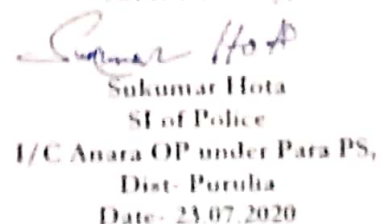 Sukumar Hota
Sukumar Hota
SI of Police
I/C Anara OP under Para PS,
Dist- Purulia
Date- 23.07.2020